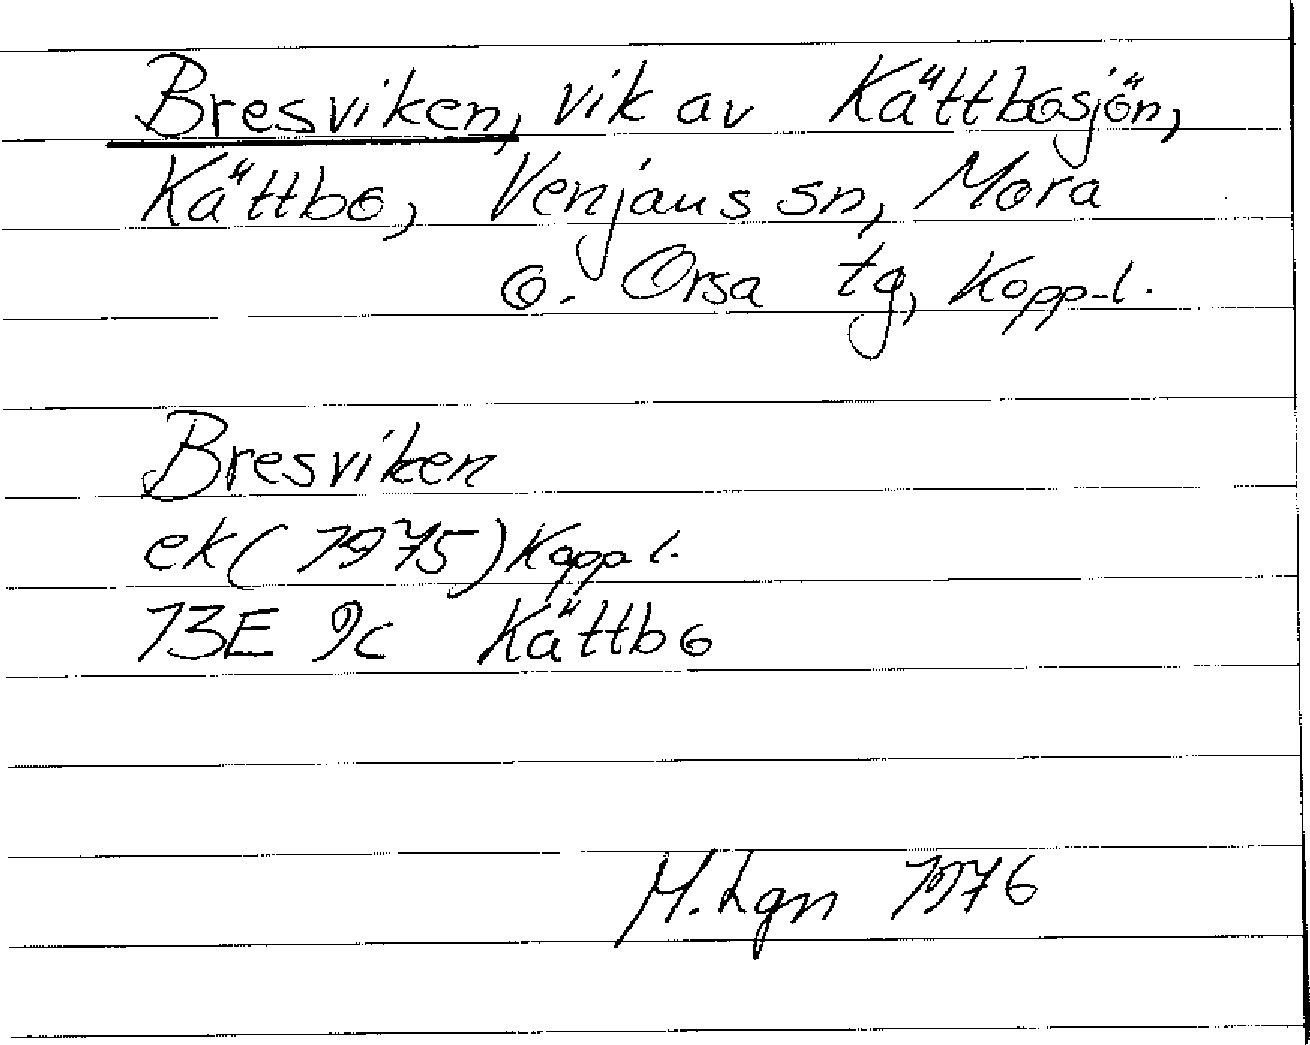 Bresviken, vik av Kättbosjön,
Kättbo, Venjans sn, Mora
o. Orsa tg, Kopp.l.
Bresviken
ek (1975) Kopp l.
13E 9c Kättbo
M. Lgn 1976